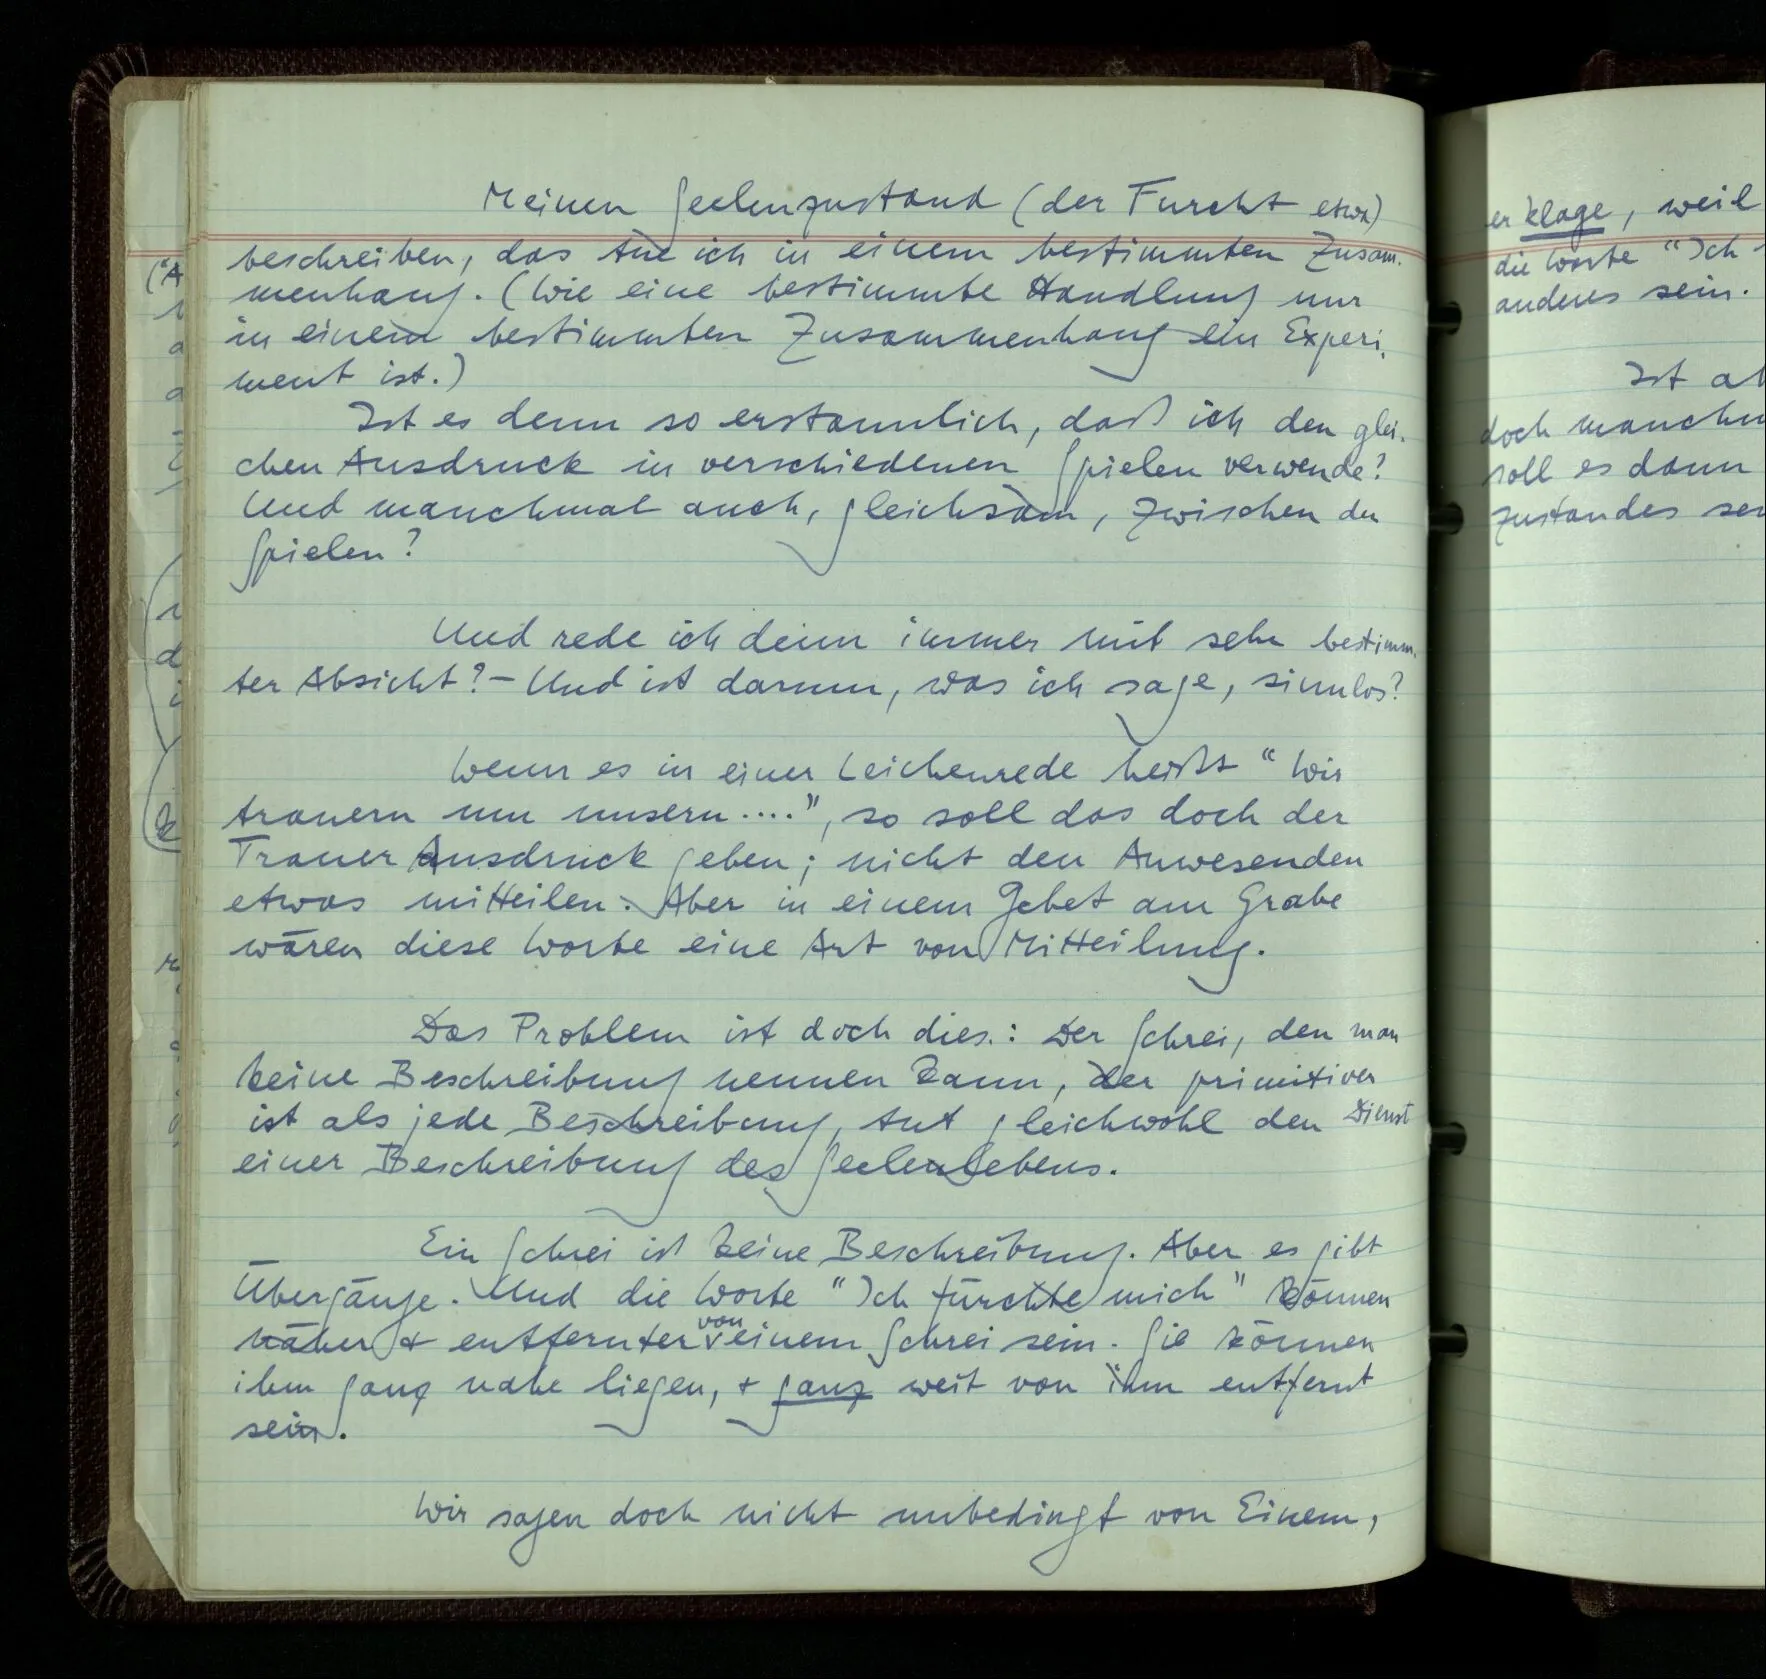 Meinen Seelenzustand (der Furcht etwa)
beschreiben, das tue ich in einem bestimmten Zusam-
menhang. (Wie eine bestimmte Handlung nur
in einem bestimmten Zusammenhang ein Experi-
ment ist.)
Ist es denn so erstaunlich, daß ich den glei-
chen Ausdruck in verschiedenen Spielen verwende?
Und manchmal auch, gleichsam, zwischen den
Spielen?
Und rede ich denn immer mit sehr bestimm-
ter Absicht? – Und ist darum, was ich sage, sinnlos?
Wenn es in einer Leichenrede heißt “Wir
trauern um unsern....”, so soll das doch der
Trauer Ausdruck geben; nicht den Anwesenden
etwas mitteilen. Aber in einem Gebet am Grabe
wären diese Worte eine Art von Mitteilung.
Das Problem ist doch dies: Der Schrei, den man
keine Beschreibung nennen kann, der primitiver
ist als jede Beschreibung, tut gleichwohl den Dienst
einer Beschreibung des Seelenlebens.
Ein Schrei ist keine Beschreibung. Aber es gibt
Übergänge. Und die Worte “Ich fürchte mich” können
näher & entfernter von einem Schrei sein. Sie können
ihm ganz nahe liegen, & ganz weit von ihm entfernt
sein.
Wir sagen doch nicht unbedingt von Einem,
er klage, weil
die Worte “Ich
anderes sein.
Ist
doch
soll es dann
zustandes